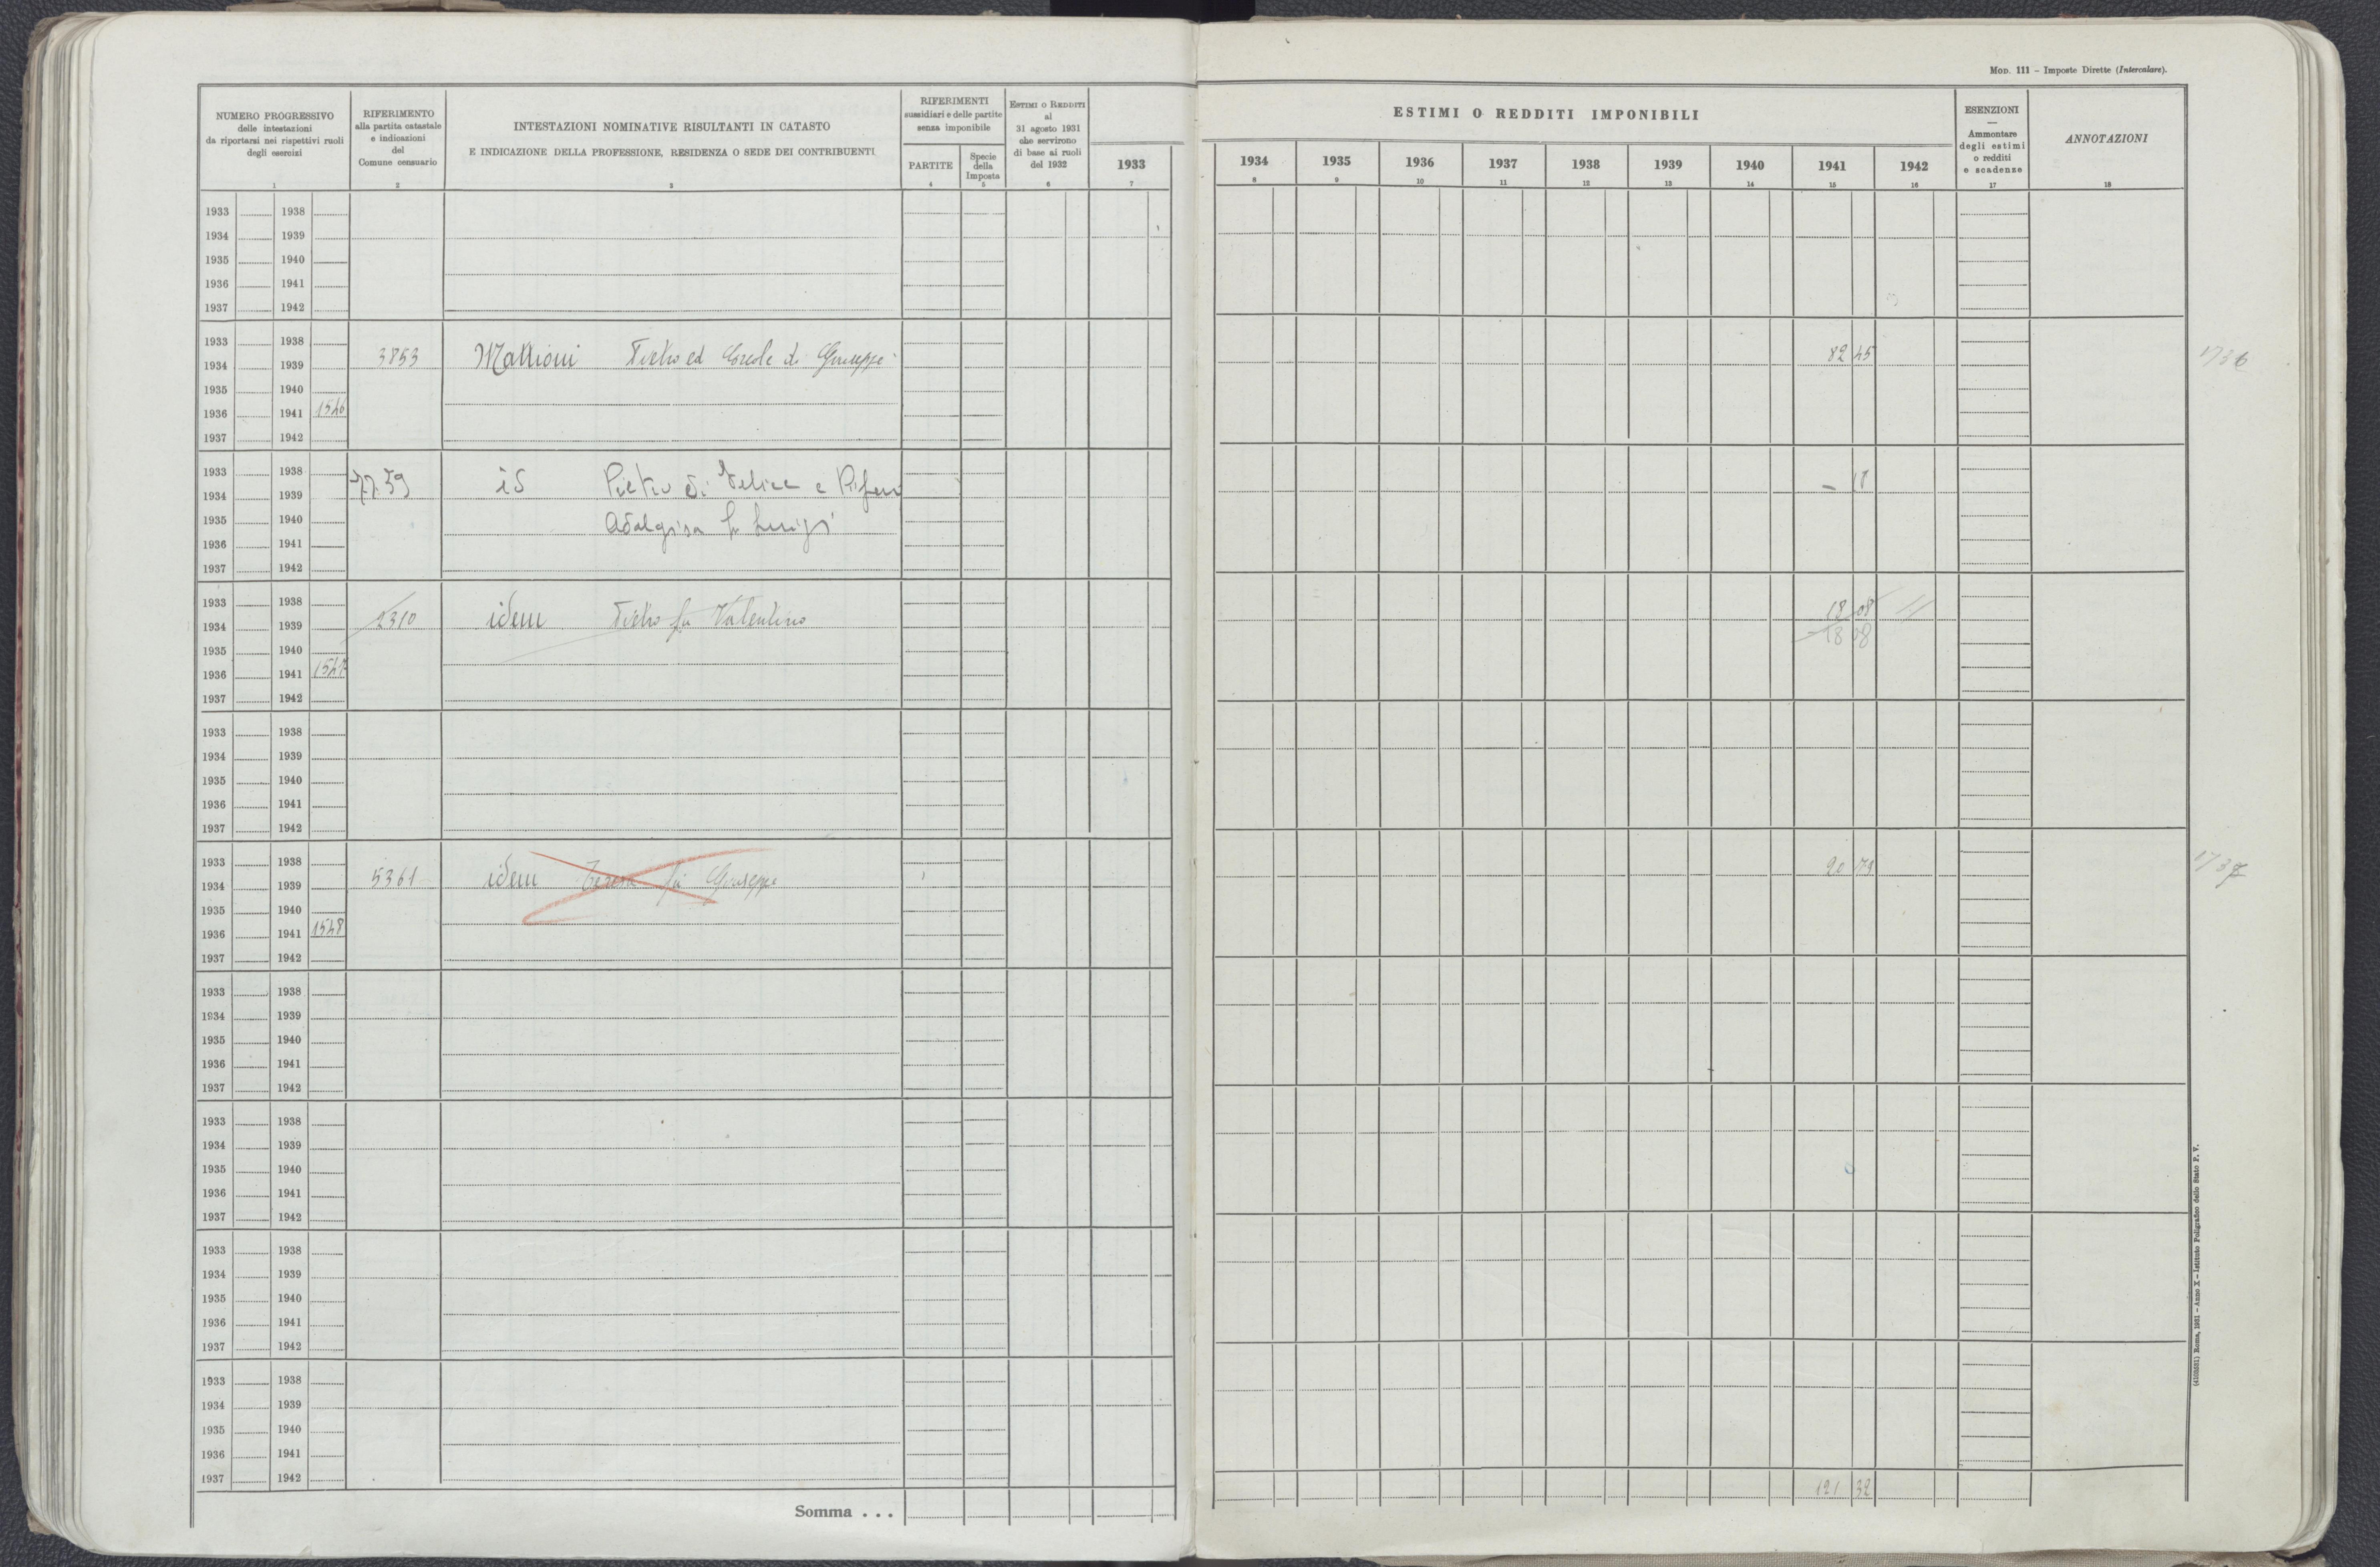 MOD. 111 – Imposte Dirette (Intercalare).
NUMERO PROGRESSIVO
delle intestazioni
da riportarsi nei rispettivi ruoli
degli esercizi
1
RIFERIMENTO
alla partita catastale
e indicazioni
del
Comune censuario
2
INTESTAZIONI NOMINATIVE RISULTANTI IN CATASTO
E INDICAZIONE DELLA PROFESSIONE, RESIDENZA O SEDE DEI CONTRIBUENTI
3
RIFERIMENTI
sussidiari e delle partite
senza imponibile
PARTITE
4
Specie
della
Imposta
5
ESTIMI O REDDITI
al
31 agosto 1931
che servirono
di base ai ruoli
del 1932
6
1933
7
ESTIMI O REDDITI IMPONIBILI
1934 1935 1936 1937 1938 1939 1940 1941 1942
8 9 10 11 12 13 14 15 16
ESENZIONI
—
Ammontare
degli estimi
o redditi
e scadenze
17
ANNOTAZIONI
18
1933 1938
1934 1939
1935 1940
1936 1941
1937 1942
1933 1938
1934 1939 3853 Mattioni Pietro ed Ercole di Giuseppe 82 45
1935 1940
1936 1941 1546
1937 1942
1933 1938
1934 1939 7759 id Pietro di Felice e 18
1935 1940 Adalgisa fu Luigi
1936 1941
1937 1942
1933 1938
1934 1939 2310 idem Pietro fu Valentino 18 08
1935 1940 – 18 08
1936 1941 1547
1937 1942
1933 1938
1934 1939
1935 1940
1936 1941
1937 1942
1933 1938
1934 1939 5361 idem Teresa fu Giuseppe 20 79
1935 1940
1936 1941 1548
1937 1942
1933 1938
1934 1939
1935 1940
1936 1941
1937 1942
1933 1938
1934 1939
1935 1940
1936 1941
1937 1942
1933 1938
1934 1939
1935 1940
1936 1941
1937 1942
1933 1938
1934 1939
1935 1940
1936 1941
1937 1942
Somma . . . 121 32
(4102631) Roma, 1931 – Anno X – Istituto Poligrafico dello Stato P. V.